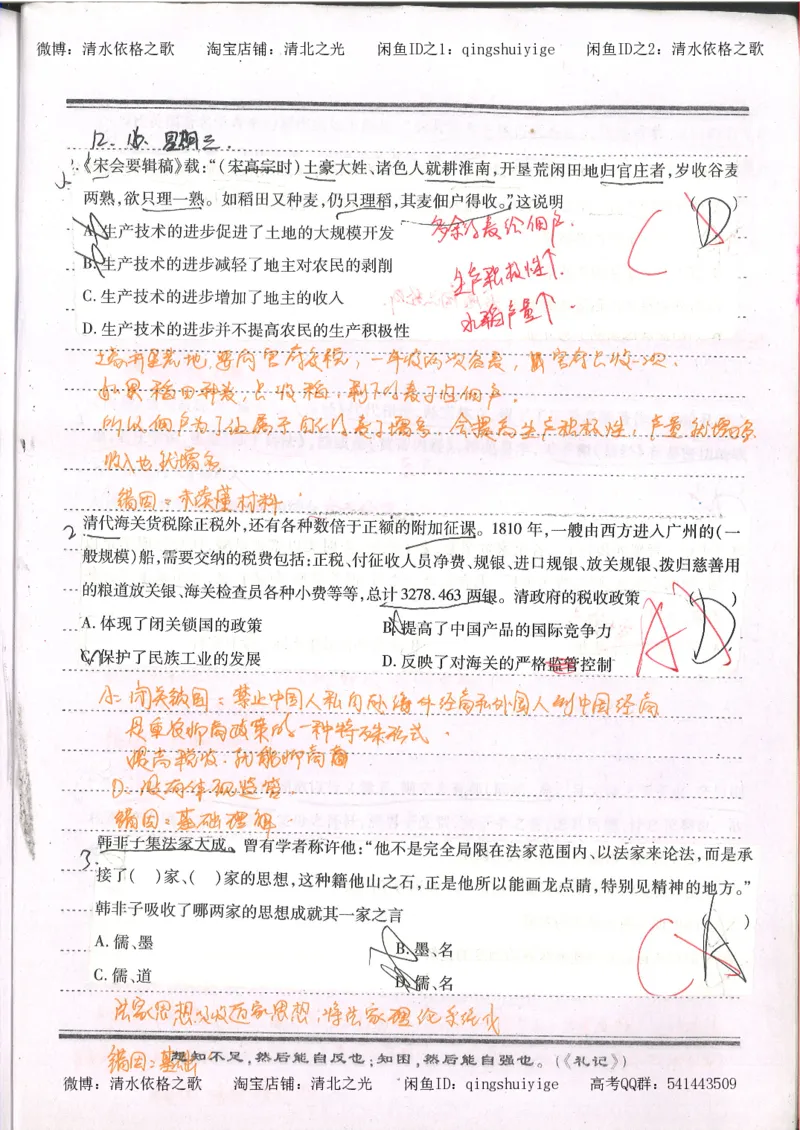 微博：清水依格之歌 淘宝店铺：清北之光 闲鱼ID之1：qingshuiyige 闲鱼ID之2：清水依格之歌
12. 16. 星期三.
1.《宋会要辑稿》载：“（宋高宗时）土豪大姓、诸色人就耕淮南，开垦荒闲田地归官庄者，岁收谷麦
两熟，欲只理一熟。如稻田又种麦，仍只理稻，其麦佃户得收。”这说明 （D）
A. 生产技术的进步促进了土地的大规模开发
多余的麦给佃户.
C
B. 生产技术的进步减轻了地主对农民的剥削
生产积极性↑.
C. 生产技术的进步增加了地主的收入
水稻产量↑.
D. 生产技术的进步并不提高农民的生产积极性
土豪开垦荒地，要向官府交税，一年收两次谷麦，官府只收一次.
如果稻田种麦，只收稻，剩下的麦子归佃户.
所以佃户为了让属于自己的麦子增多，会提高生产积极性，产量就增多
收入也就增多
错因：未读懂材料.
2.清代海关货税除正税外，还有各种数倍于正额的附加征课。1810 年，一艘由西方进入广州的（一
般规模）船，需要交纳的税费包括：正税、付征收人员净费、规银、进口规银、放关规银、拨归慈善用
的粮道放关银、海关检查员各种小费等等，总计 3278.463 两银。清政府的税收政策 （D）
A. 体现了闭关锁国的政策 B. 提高了中国产品的国际竞争力
A
C. 保护了民族工业的发展 D. 反映了对海关的严格监管控制
A：闭关锁国：禁止中国人私自赴海外经商和外国人到中国经商
是重农抑商政策的一种特殊形式.
提高税收.就能抑商
D：没有体现监管
错因：基础理解.
3.韩非子集法家大成。曾有学者称许他：“他不是完全局限在法家范围内、以法家来论法，而是承
接了（ ）家、（ ）家的思想，这种籍他山之石，正是他所以能画龙点睛，特别见精神的地方。”
韩非子吸收了哪两家的思想成就其一家之言 （A）
A. 儒、墨 B. 墨、名
C
C. 儒、道 D. 儒、名
法家思想吸收道家思想，将法家理论系统化
错因：基础
想知不足，然后能自反也；知困，然后能自强也。（《礼记》）
微博：清水依格之歌 淘宝店铺：清北之光 闲鱼ID：qingshuiyige 高考QQ群：541443509